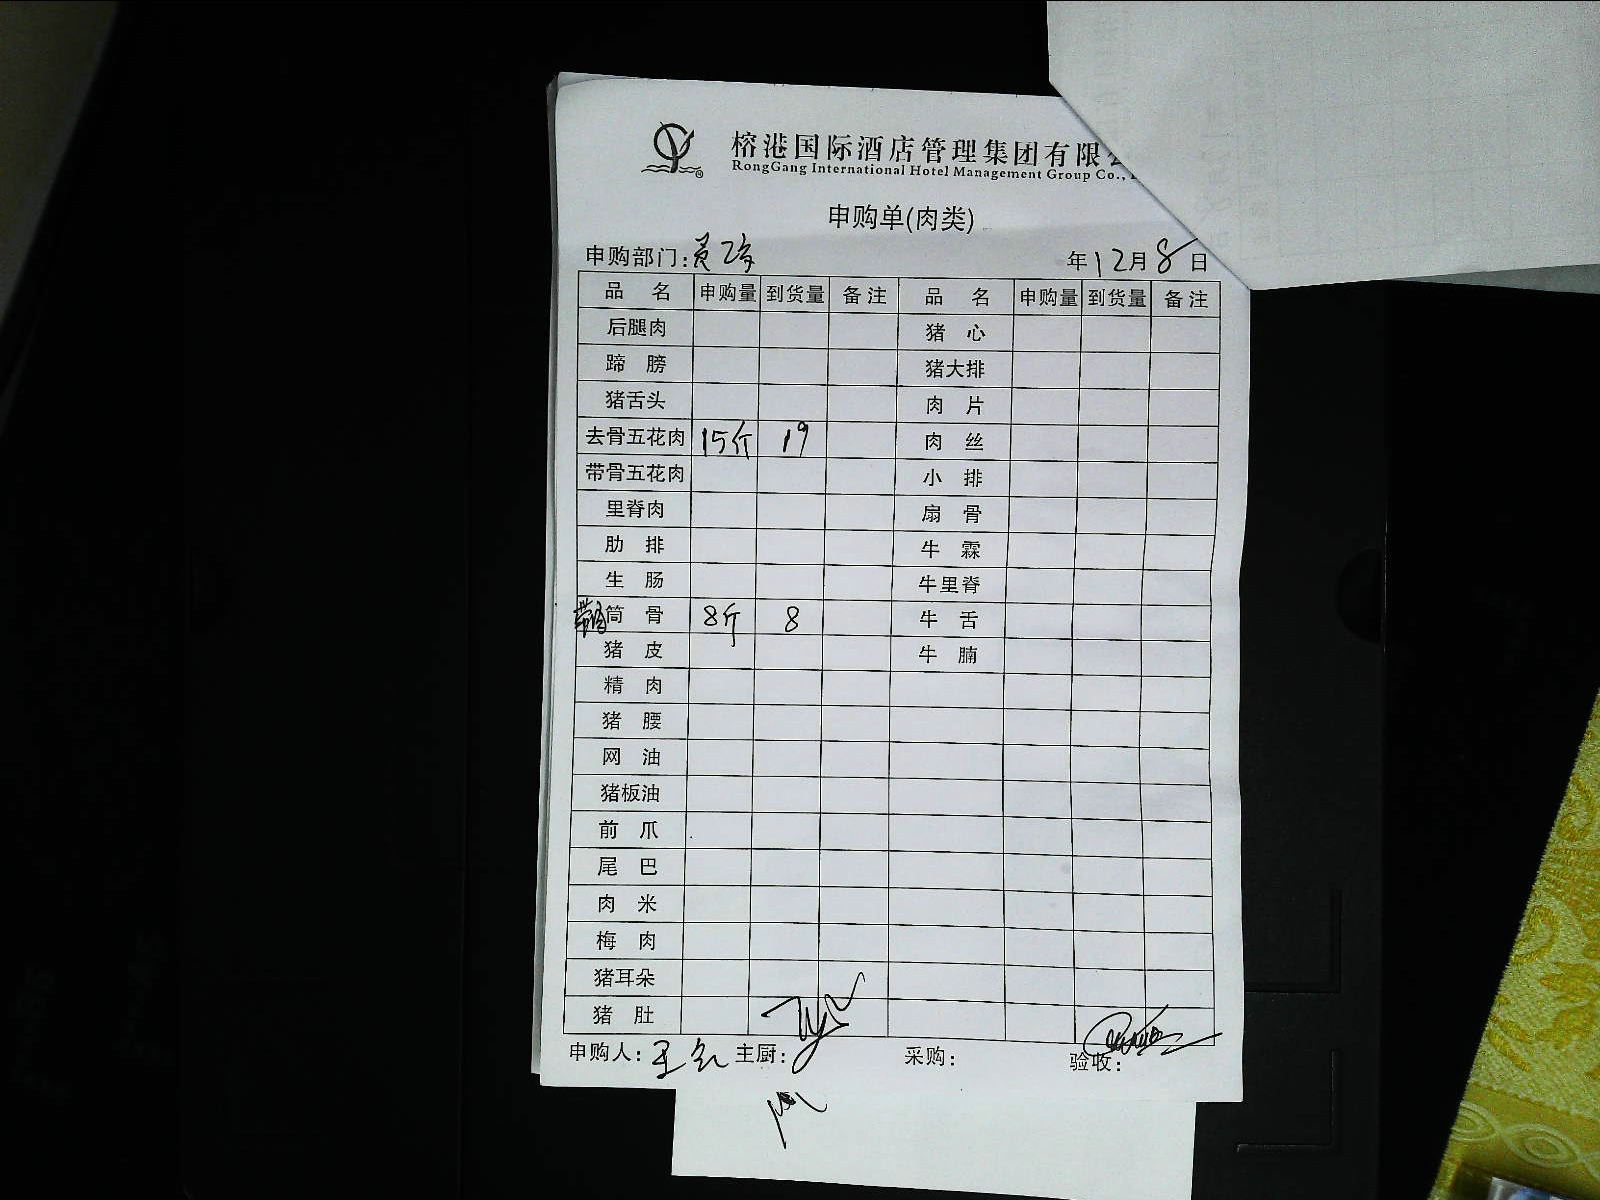 榕港国际酒店管理集团有限
RongGang International Hotel Management Group Co.,
申购单(肉类)
申购部门: 年12月8日
品 名 申购量 到货量 备注 品 名 申购量 到货量 备注
后腿肉 猪 心
蹄 膀 猪大排
猪舌头 肉 片
去骨五花肉 15斤 19 肉 丝
带骨五花肉 小 排
里脊肉 扇 骨
肋 排 牛 霖
生 肠 牛里脊
筒 骨 8斤 8 牛 舌
猪 皮 牛 腩
精 肉
猪 腰
网 油
猪板油
前 爪
尾 巴
肉 米
梅 肉
猪耳朵
猪 肚
申购人: 主厨: 采购: 验收: